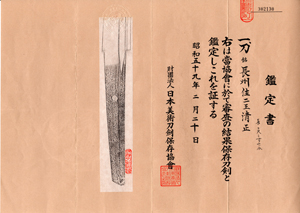 382136
鑑定書
一、刀 銘 長州住二王清正
右は當協會に於て審査の結果保存刀剣と
鑑定しこれを証する
昭和五十九年二月二十日
財團法人日本美術刀剣保存協會